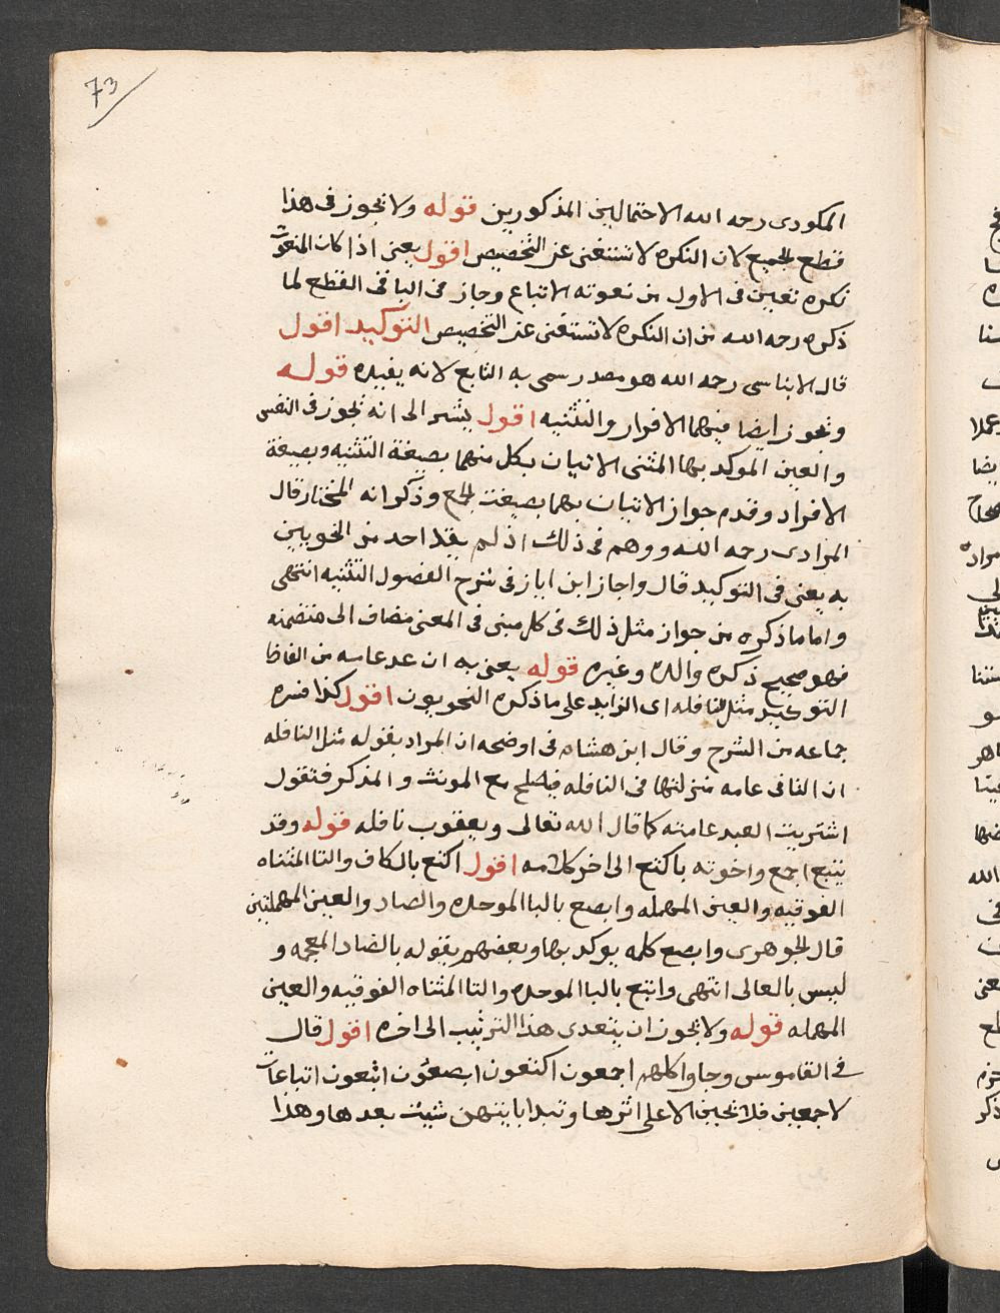 73
المكودى رحه الله الاحتمالين المذكورين قوله ولا يجوز فى هذا
قطع الجميع لان النكره لا تستغنى عن التخصيص اقول يعنى اذا كان المنعوت
نكره تعين فى الاول من نعوته الاتباع وجاز فى الباقى القطع لما
ذكره رحه الله من ان النكره لا تستغنى عن التخصيص التوكيد اقول
قال الابناسى رحه الله هو مصدر سمى به التابع لانه يفيده قوله
ويجوز ايضا فيهما الافراد والتثنيه اقول يشير الى انه يجوز فى النفس
والعين الموكد بها المثنى الاتيان بكل منهما بصيغة التثنيه وبصيغة
الافراد وقدم جواز الاتيان بهما بصيغت الجمع وذكر انه المختار قال
المرادى رحه الله ووهم فى ذلك اذ لم يقل احد من النحويين
به يعنى فى التوكيد قال واجاز ابن اياز فى شرح الفصول التثنيه انتهى
واما ما ذكره من جواز مثل ذلك فى كل مبنى فى المعنى مضاف الى متضمنه
فهو صحيح ذكره والده وغيره قوله يعنى به ان عد عامه من الفاظ
التوكيد مثل النافله اى الزايد على ما ذكره النحويون اقول كذا فسره
جماعه من الشرح وقال ابن هشام فى اوضحه ان المراد بقوله مثل النافله
ان التا فى عامه منزلتها فى النافله فيصلح مع المونث والمذكر فتقول
اشتريت العبد عامته كما قال الله تعالى ويعقوب نافله قوله وقد
يتبع اجمع واخوته باكتع الى اخر كلامه اقول اكتع بالكاف والتا المثناه
الفوقيه والعين المهمله وابصع بالبا الموحده والصاد والعين المهملتين
قال الجوهرى وابصع كلمه يوكد بها وبعضهم يقوله بالضاد المعجمه و
ليس بالعالى انتهى وابتع بالبا الموحده والتا المثناه الفوقيه والعين
المهمله قوله ولا يجوز ان يتعدى هذا الترتيب الى اخره اقول قال
فى القاموس وجاوا كلهم اجمعون اكتعون ابصعون ابتعون اتباعات
لاجمعين فلا يجين الا على اثرها وتبدا بايتهن شيت بعدها وهذا